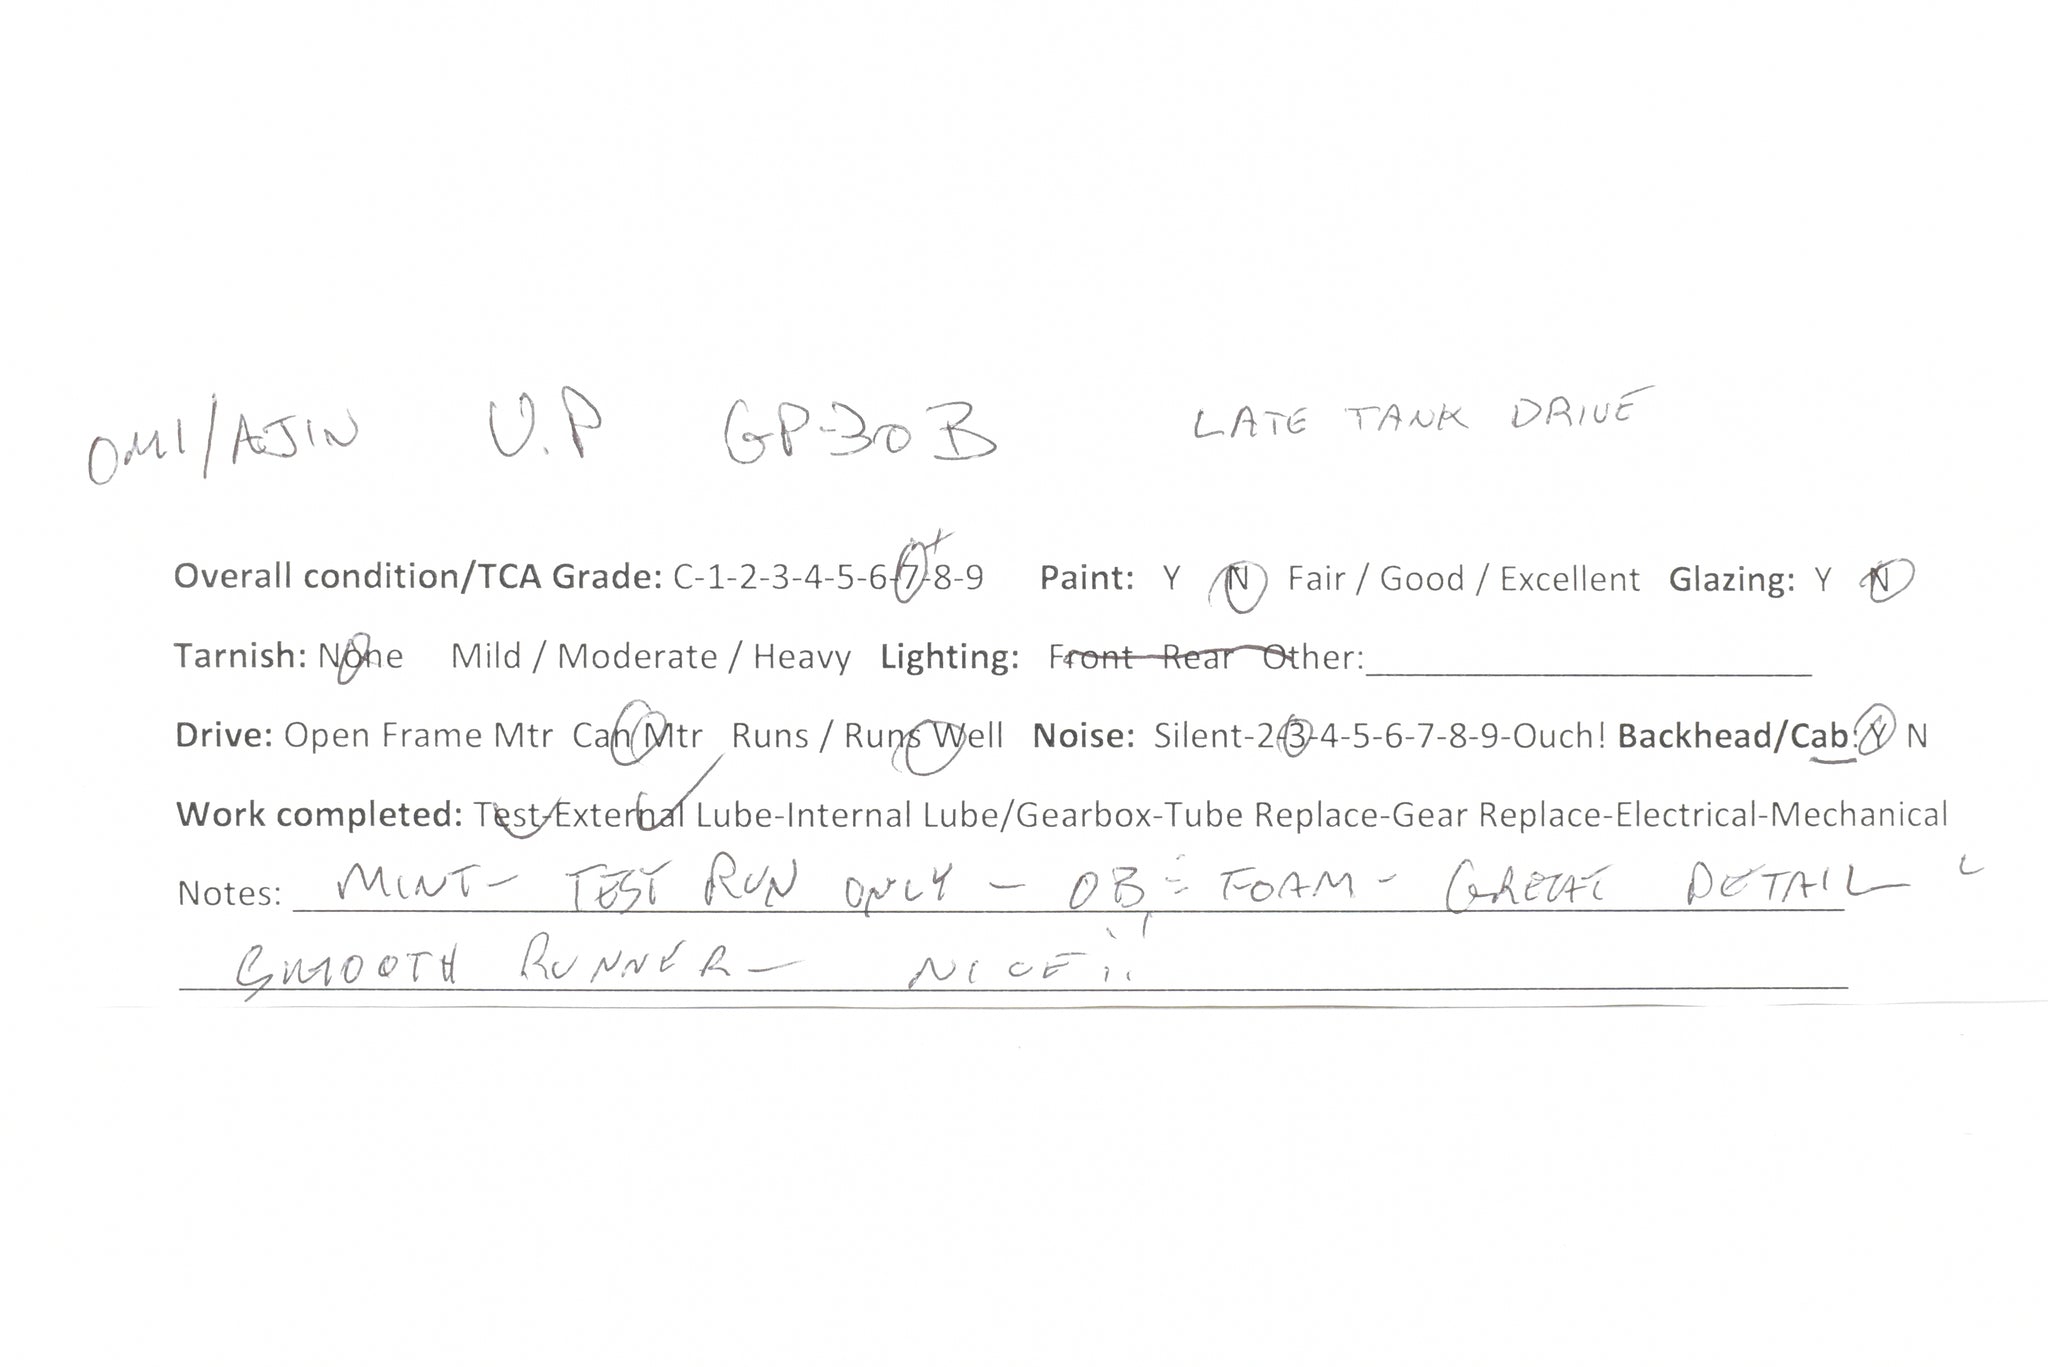 OMI/AJIN U.P GP-30B LATE TANK DRIVE
Overall condition/TCA Grade: C-1-2-3-4-5-6-7+-8-9 Paint: Y N Fair / Good / Excellent Glazing: Y N
Tarnish: None Mild / Moderate / Heavy Lighting: Front Rear Other:
Drive: Open Frame Mtr Can Mtr Runs / Runs Well Noise: Silent-2-3-4-5-6-7-8-9-Ouch! Backhead/Cab: Y N
Work completed: Test-External Lube-Internal Lube/Gearbox-Tube Replace-Gear Replace-Electrical-Mechanical
Notes: MINT- TEST RUN ONLY - OB FOAM - GREAT DETAIL
SMOOTH RUNNER - NICE!!